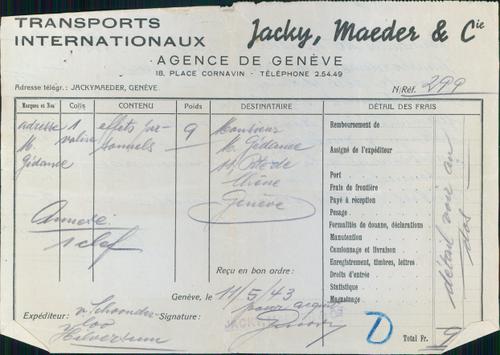 TRANSPORTS
INTERNATIONAUX
Jacky, Maeder & Cie
AGENCE DE GENÈVE
18, PLACE CORNAVIN - TÉLÉPHONE 2.54.49
Adresse télégr.: JACKYMAEDER, GENÈVE.
N/Réf. 299
Marques et Nos Colis CONTENU Poids DESTINATAIRE DÉTAIL DES FRAIS
adresse 1 effets per- 9 Monsieur
M. valise sonnels M. Gidance
Gidance 11, Rte de
Chêne
Genève
Annexe
1 clef
Remboursement de
Assigné de l'expéditeur
Port
Frais de frontière
Payé à réception
Pesage
Formalités de douane, déclarations
Manutention
Camionnage et livraison
Enregistrement, timbres, lettres
Droits d'entrée
Statistique
Magasinage
détail voir au dos
Reçu en bon ordre:
Genève, le 11/5/43
Expéditeur: v. Schoonder-
loo
Hilversum
Signature:
D
Total Fr. 9